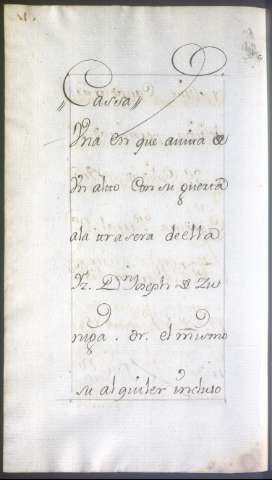 "Cassa"
Una en que aviva de
Un alto Con su guerta
ala trasera de ella
Dn. Joseph de Zu
niga. dr. el mismo
su alquiler incluso